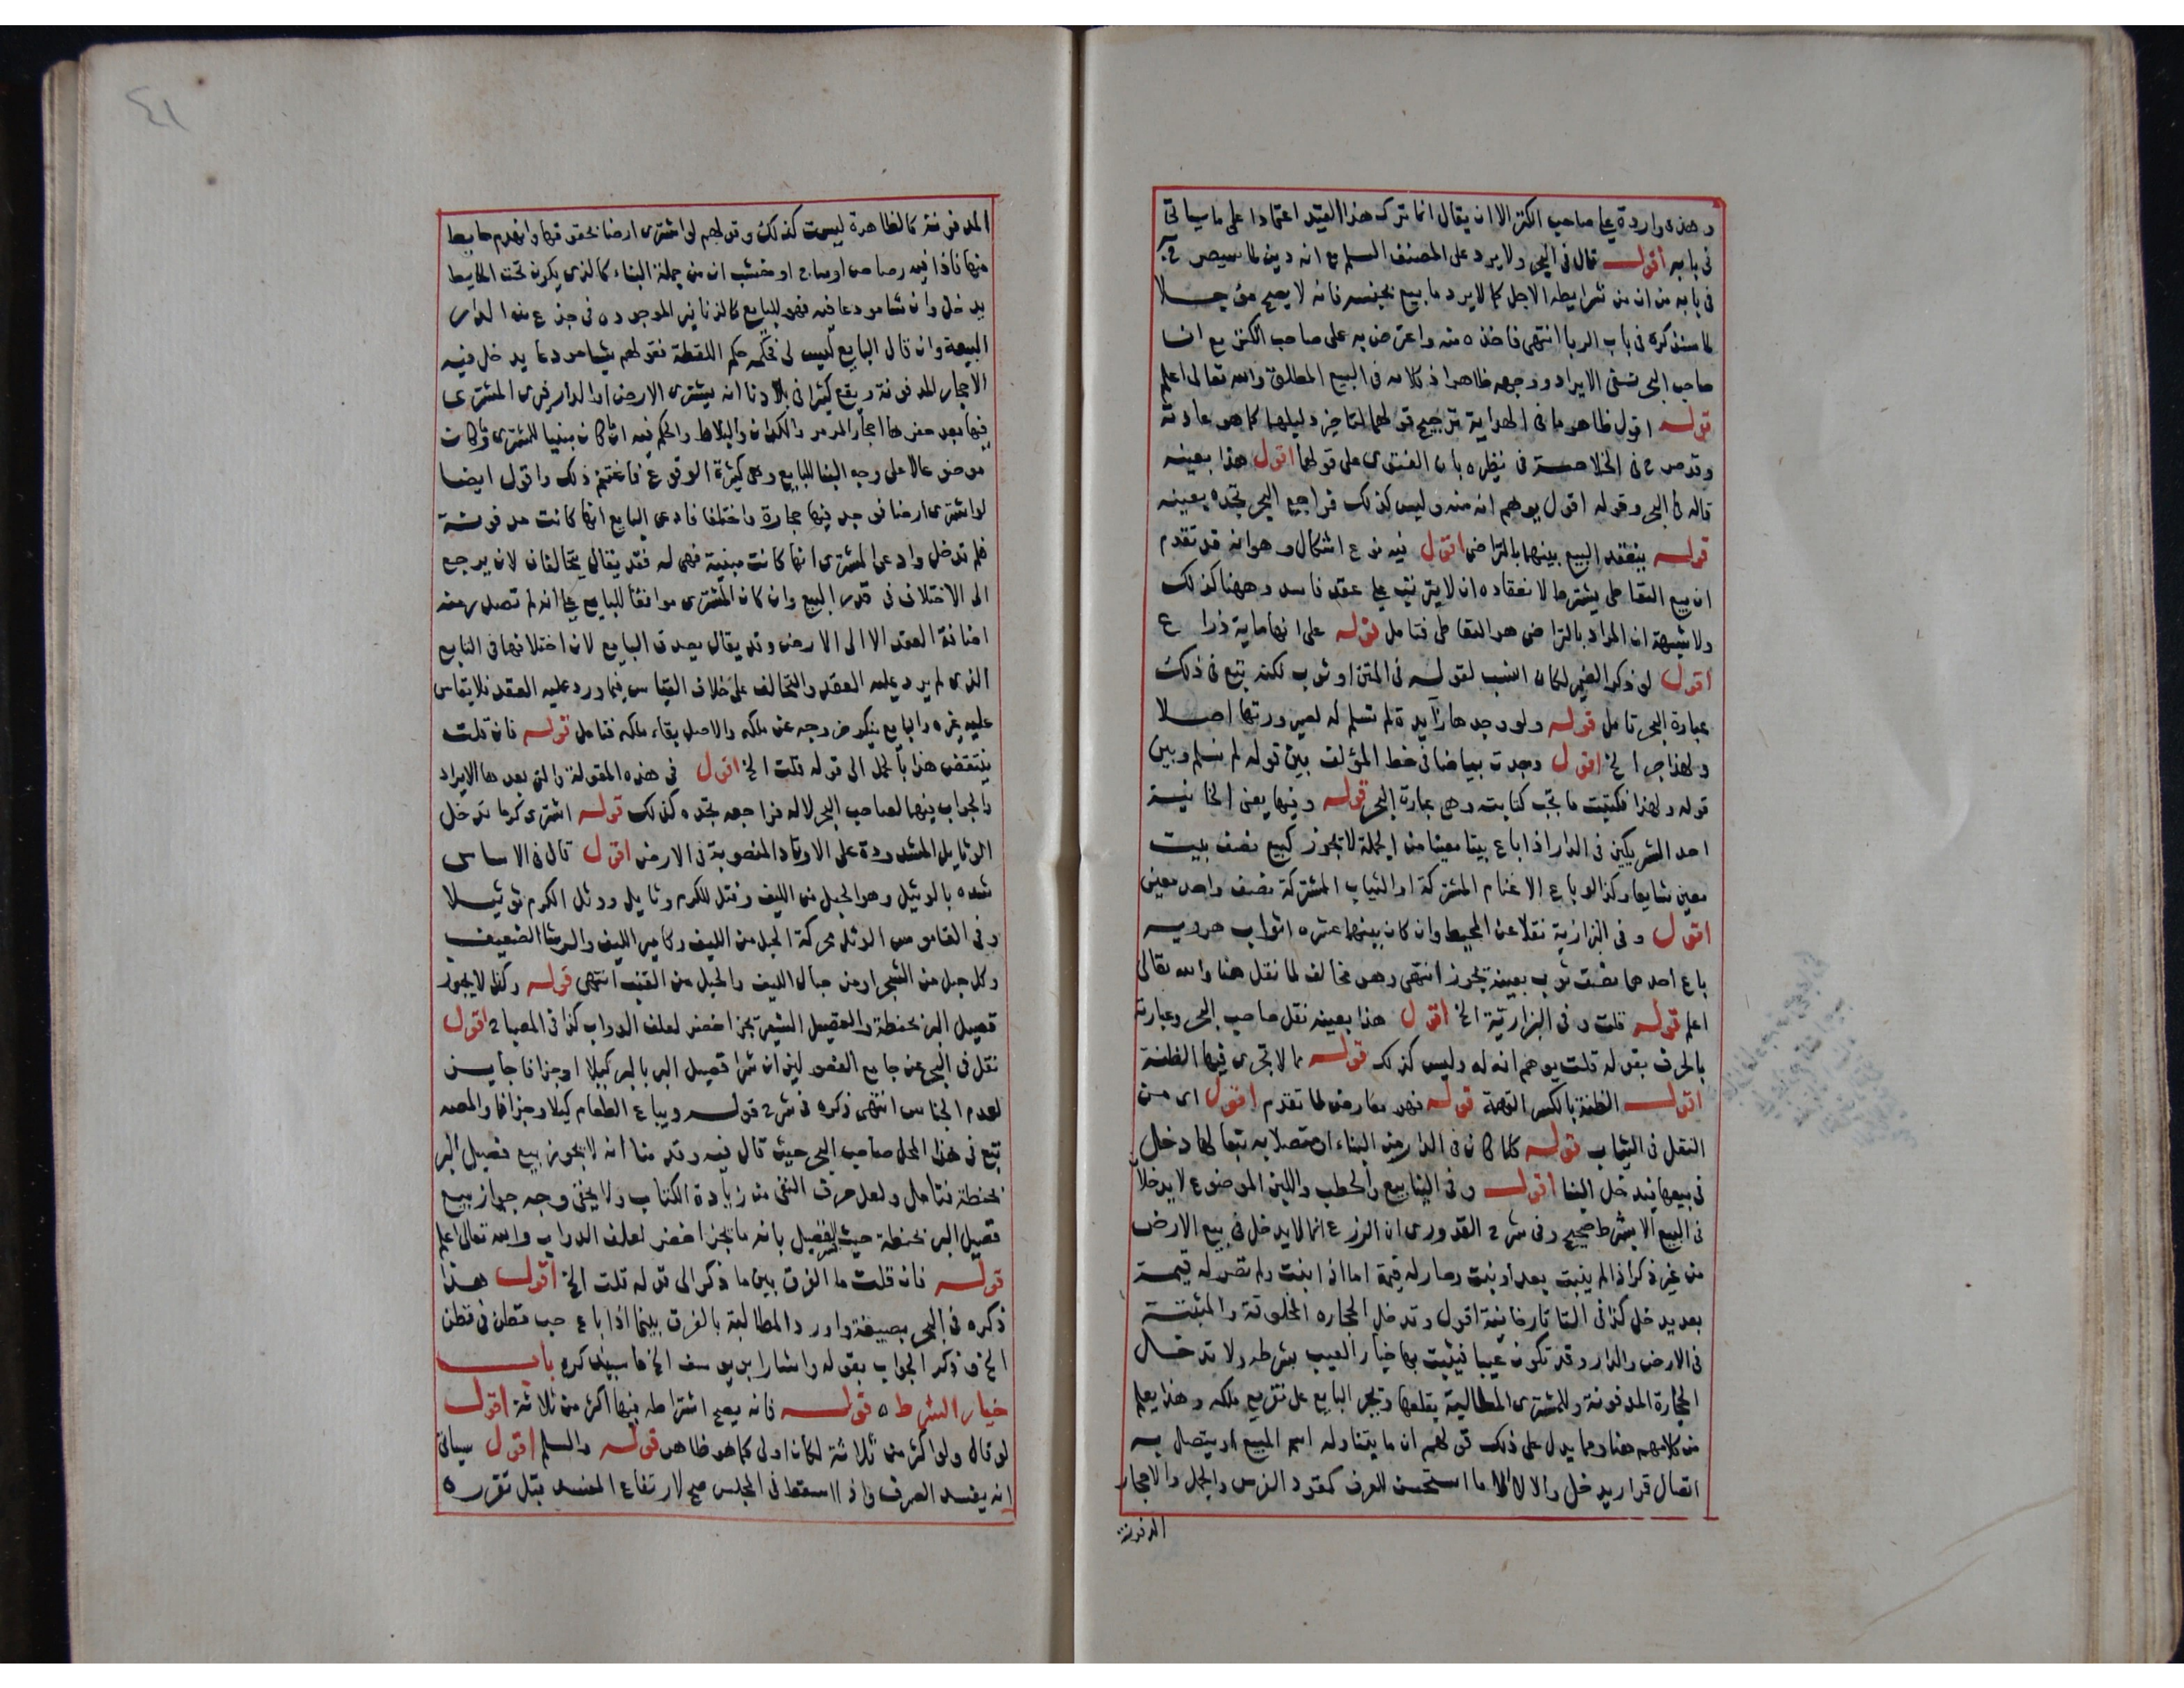 وهذه واردة على صاحب الكنز الا ان يقال انما ترك هذا القيد اعتمادا على ما سياتي
في بابه اقول قال في البحر ولا يرد على المصنف السلم مع انه دين لما سيصرح به
في بابه من ان من شرايطه الاجل كما لا يرد ما بيع بجنسه فانه لا يصح مؤجلا
لما سنذكره في باب الربا انتهى فاخذه منه واعترض به على صاحب الكنز مع ان
صاحب البحر نفى الايراد ووجهه ظاهر اذ كلامه في البيع المطلق والله تعالى اعلم
قوله اقول ظاهر ما في الهداية ترجيح قولهما لتاخير دليلهما كما هو عادته
وقد صرح في الخلاصة في نظيره بان الفتوى على قولهما اقول هذا بعينه
قاله في البحر وقوله اقول يوهم انه منه وليس كذلك فراجع البحر تجده بعينه
قوله ينعقد البيع بينهما بالتراضي اقول فيه نوع اشكال وهو انه قد تقدم
ان بيع التعاطي يشترط لانعقاده ان لا يترتب على عقد فاسد وههنا كذلك
ولا شبهة ان المراد بالتراضي هو التعاطي فتامل قوله على انها ماية ذراع
اقول لو ذكر الضمير لكان انسب لقوله في المتن او ثوب لكنه تبع في ذلك
عبارة البحر تامل قوله ولو وجدها زايدة لم تسلم له لصيرورتها اصلا
ولهذا جر الخ اقول وجدت بياضا في خط المؤلف بين قوله لم تسلم وبين
قوله ولهذا فكتبت ما تجب كتابته وهي عبارة البحر قوله وفيها يعني الخانية
احد الشريكين في الدار اذا باع بيتا معينا من الجملة لا يجوز كبيع نصف بيت
معين شايعا وكذا لو باع الاغنام المشتركة او الثياب المشتركة نصف واحد معين
اقول وفي البزازية نقلا عن المحيط وان كان بينهما عشرة اثواب هروية
باع احدهما نصف ثوب بعينه يجوز انتهى وهو مخالف لما نقل هنا والله تعالى
اعلم قوله قلت وفي البزازية الخ اقول هذا بعينه نقل صاحب البحر وعبارته
بالحرف بقوله قلت يوهم انه له وليس كذلك قوله مما لا تجري فيها الظنة
اقول الظنة بالكسر التهمة قوله فهو معارض لما تقدم اقول اي من
النقل في الثياب قوله كلما كان في الدار من البناء او متصلا به تبعا لها دخل
في بيعها فيدخل البنا اقول وفي الينابيع والحطب واللبن الموضوع لا يدخلا
في البيع الا بشرط صحيح وفي شرح القدوري ان الزرع انما لا يدخل في بيع الارض
من غير ذكر اذا لم ينبت بعد او نبت وصار له قيمة اما اذا نبت ولم تصر له قيمة
بعد يدخل كذا في التاتارخانية اقول وتدخل الحجارة المخلوقة والمثبتة
في الارض والدار وقد تكون عيبا فيثبت بها خيار العيب بشرطه ولا تدخل
الحجارة المدفونة وللمشتري المطالبة بقلعها ويجبر البايع على تفريع ملكه وهذا يعلم
من كلامهم هنا ومما يدل على ذلك قولهم ان ما يتناوله اسم المبيع او يتصل به
اتصال قرار يدخل والا لا الا ما استحسن للعرف كمقود الفرس والجمل والاحجار
المدفونة
٤١
المدفونة كالظاهرة ليست كذلك وقولهم لو اشترى ارضا بحقوقها وانهدم حايط
منها فاذا فيه رصاص او ساج او خشب ان من جملة البناء كالذي يكون تحت الحايط
يدخل وان شا مودعا فيه فهو للبايع كالدنانير الموجودة في جذع من الدار
المبيعة وان قال البايع ليس لي فحكمه حكم اللقطة فقولهم شيا مودعا يدخل فيه
الاحجار المدفونة ويقع كثيرا في بلادنا انه يشتري الارض او الدار فيرى المشتري
فيها بعد حفرها احجار المرمر والكدان والبلاط والحكم فيه ان كان مبنيا للمشتري وان كان
موضوعا لا على وجه البنا للبايع وهي كثيرة الوقوع فاغتنم ذلك واقول ايضا
لو اشترى ارضا فوجد فيها حجارة واختلفا فادعى البايع انها كانت مدفونة
فلم تدخل وادعى المشتري انها كانت مبنية فهي له فقد يقال يتحالفان لانه يرجع
الى الاختلاف في قدر المبيع وان كان المشتري موافقا للبايع على انه لم تصدر منه
اضافة العقد الا الى الارض وقد يقال يصدق البايع لان اختلافهما في التابع
الذي لم يرد عليه العقد والتحالف على خلاف القياس فيما ورد عليه العقد فلا يقاس
عليه غيره والبايع ينكر خروجه عن ملكه والاصل بقاء ملكه فتامل قوله فان قلت
ينتقض هذا بالحمل الى قوله قلت الخ اقول في هذه المقولة والتي بعدها الايراد
والجواب فيهما لصاحب البحر لا له فراجعه تجده كذلك قوله اشترى كرما تدخل
الوثايل المشدودة على الاوتاد المنصوبة في الارض اقول قال في الاساس
شده بالوثيل وهو الحبل من الليف وفتل للكرم وثايل ووثل الكرم توثيلا
وفي القاموس الوثل محركة الحبل من الليف وكامير الليف والرشا الضعيف
وكل حبل من الشجر او من حبال الليف والحبل من القنب انتهى قوله وكذا لا يجوز
قصيل البر بحنطة والقصيل الشعير يجز اخضر لعلف الدواب كذا في المصباح اقول
نقل في البحر عن جامع الفصولين ان شرا قصيل البر بالبر كيلا او جزافا جايز
لعدم الجناس انتهى ذكره في شرح قوله ويباع الطعام كيلا وجزافا والمصنف
تبع في هذا المحل صاحب البحر حيث قال فيه وقدمنا انه لا يجوز بيع قصيل البر
بحنطة فتامل ولعل حرف النفي من زيادة الكتاب ولا يخفى وجه جواز بيع
قصيل البر بحنطة حيث فسر القصيل بانه ما يجز اخضر لعلف الدواب والله تعالى اعلم
قوله فان قلت ما الفرق بين ما ذكر الى قوله قلت الخ اقول هذا
ذكره في البحر بصيغة واورد المطالبة بالفرق بينما اذا باع حب قطن في قطن
الخ وذكر الجواب بقوله واشار ابو يوسف الخ ما سيذكره باب
خيار الشرط ه قوله فانه يصح اشتراطه فيها اكثر من ثلاثة اقول
لو قال ولو اكثر من ثلاثة لكان اولى كما هو ظاهر قوله والسلم اقول سياتي
انه يفسد الصرف واذا اسقط في المجلس صح لارتفاع المفسد قبل تقرره